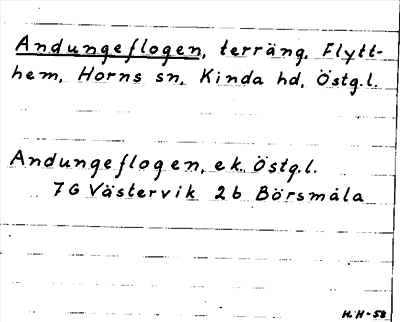 Andungeflogen, terräng, Flytt-
hem, Horns sn, Kinda hd, Östg.l.
Andungeflogen, ek. Östg.l.
7G Västervik 2b Börsmåla
H.H-58